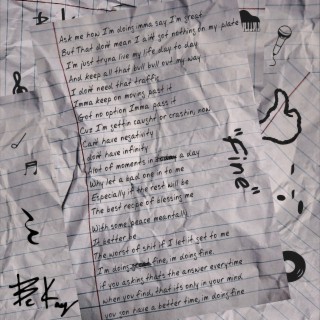 Ask me how I'm doing imma say I'm great
But That don't mean I aint got nothing on my plate
I'm just tryna live my life day to day
And keep all that bull bull out my way
I don't need that traffic
Imma keep on moving past it
Got no option Imma pass it
Cuz I'm gettin caught or crashin, now
Cant have negativity
dont have infinity
Alot of moments in a day
Why let a bad one in to me
Especially if the rest will be
The best recipe of blessing me
With some peace meantally
It better be
The worst of shit if I let it get to me
I'm doing fine, im doing fine
if you asking thats the answer everytime
when you find, that its only in your mind
you gon have a better time, im doing fine
"Fine"
Kay